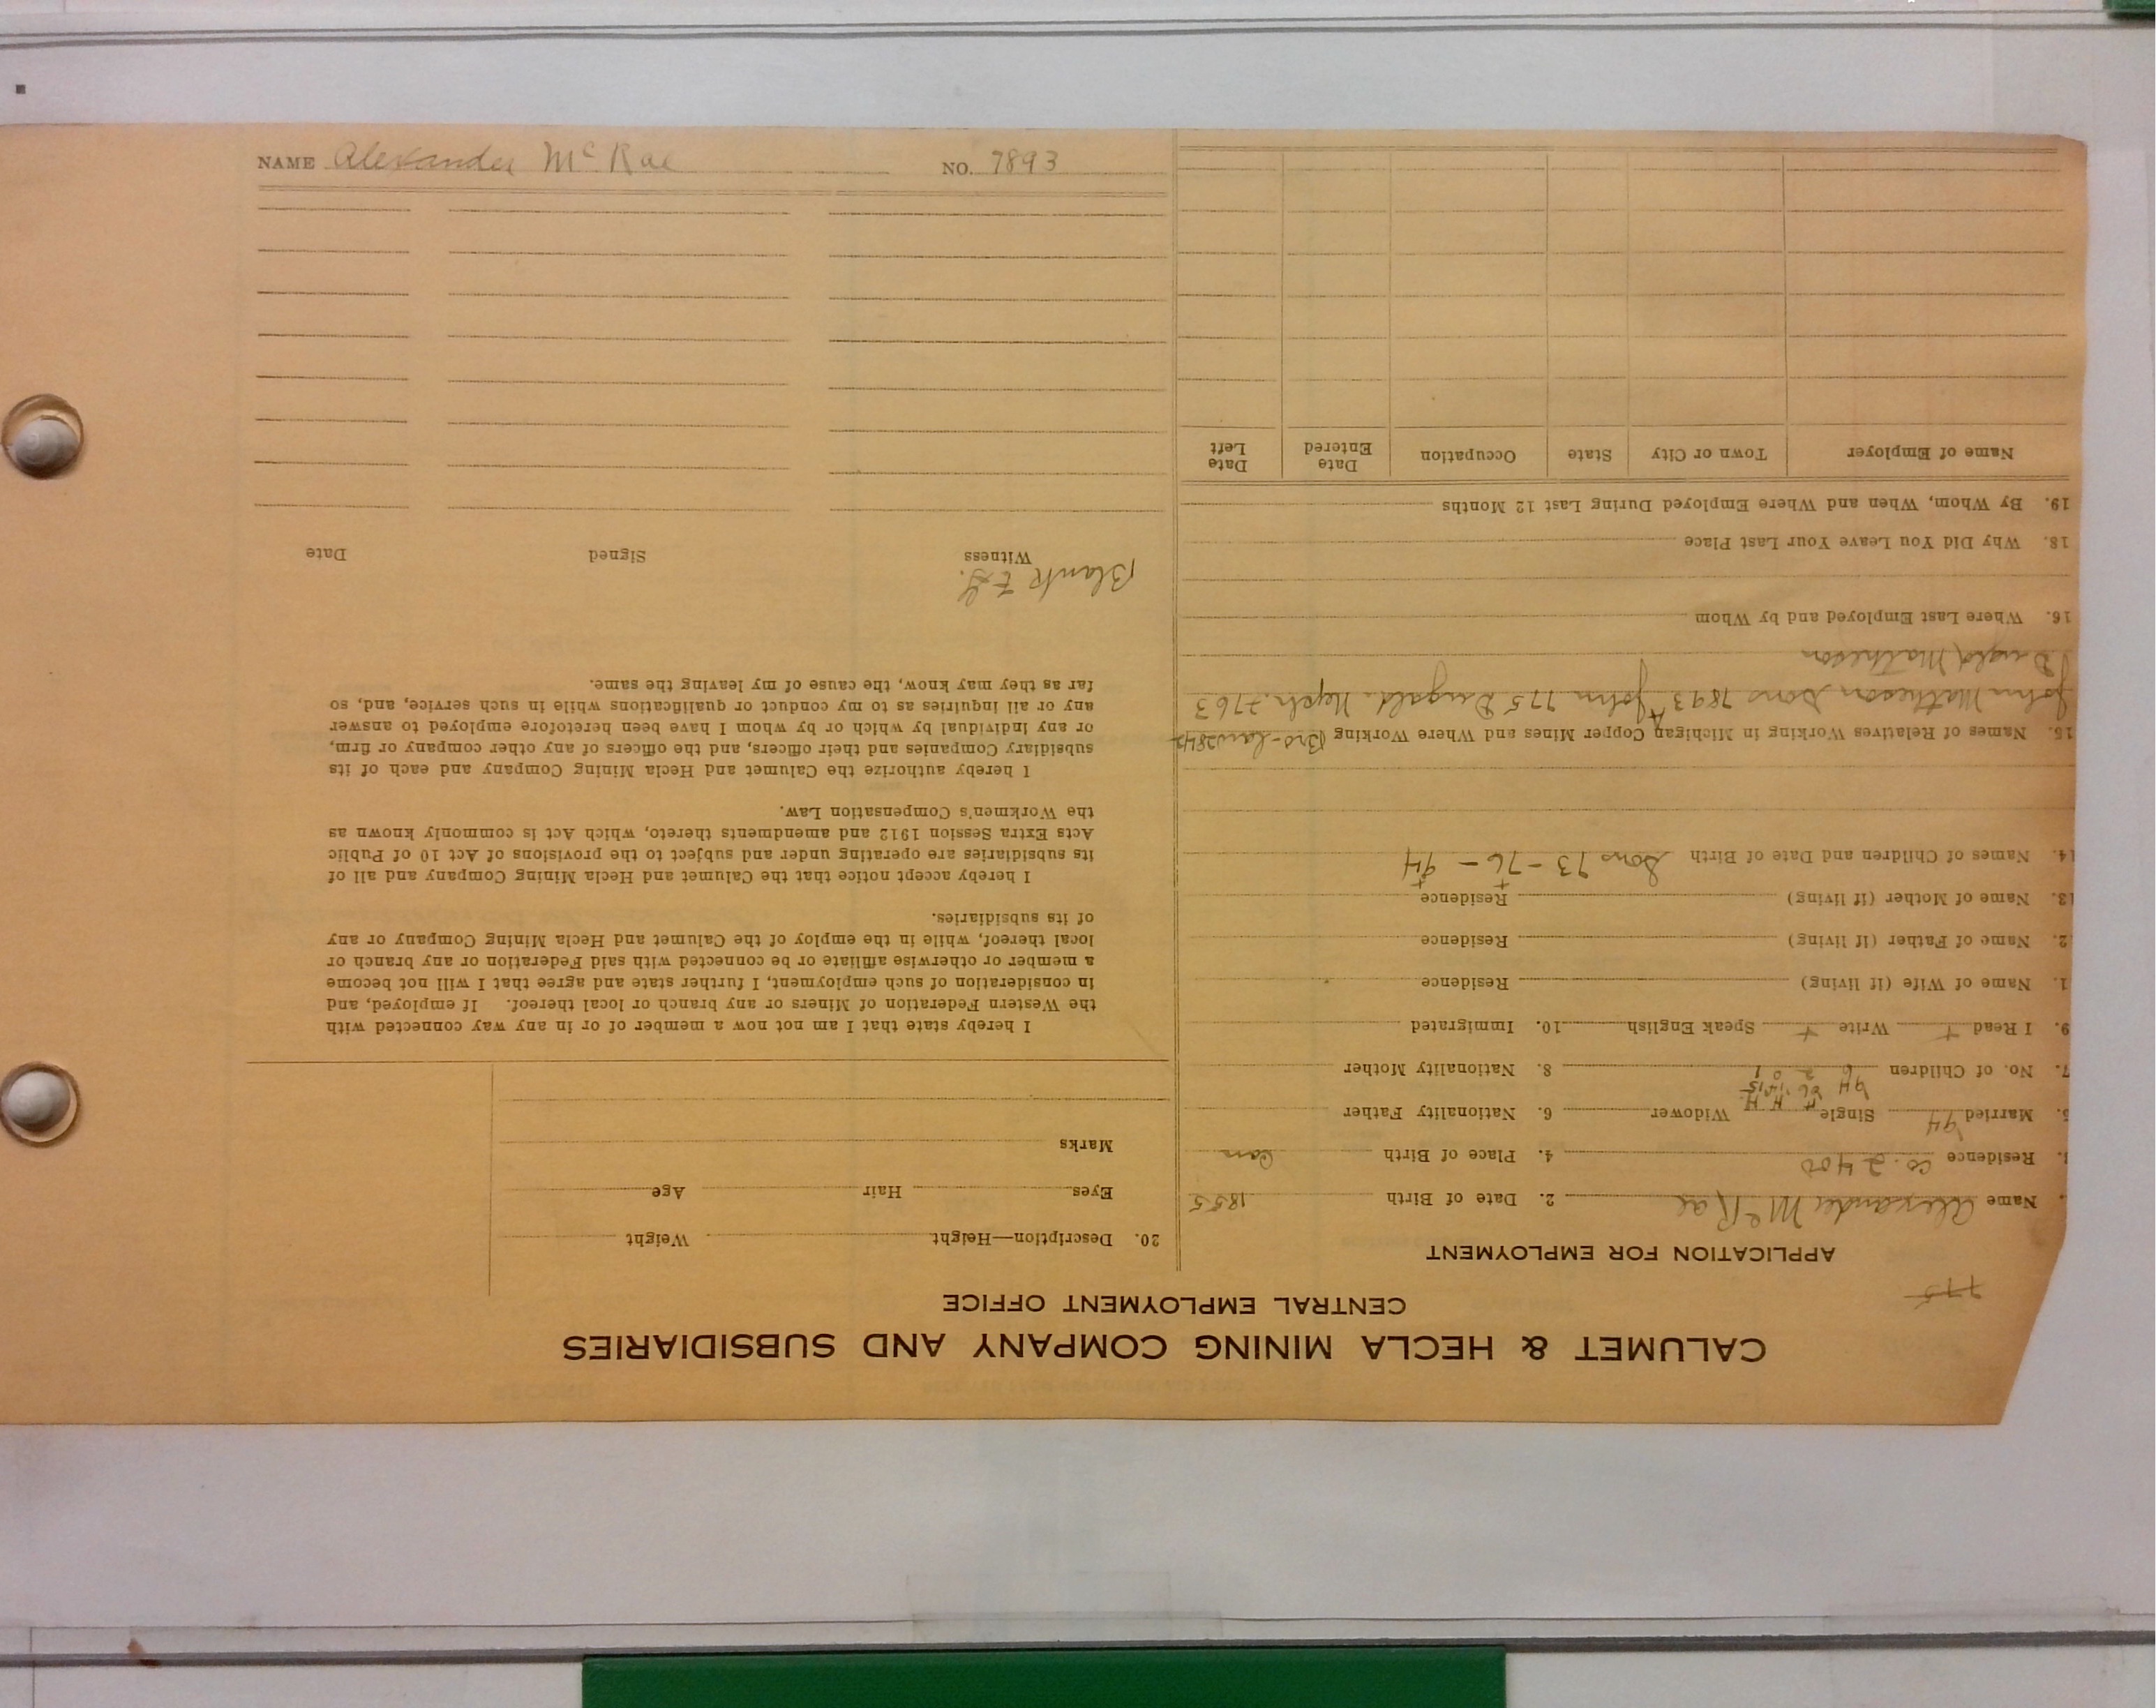 NAME Alexander McRae NO. 7893
CALUMET & HECLA MINING COMPANY AND SUBSIDIARIES
CENTRAL EMPLOYMENT OFFICE
775
APPLICATION FOR EMPLOYMENT
Name Alexander McRae 2. Date of Birth 1855
Residence Co. 2400 4. Place of Birth Can
5. Married 94 Single Widower 6. Nationality Father
7. No. of Children 8. Nationality Mother
9. I Read + Write + Speak English 10. Immigrated
1. Name of Wife (if living) Residence
2. Name of Father (if living) Residence
13. Name of Mother (if living) Residence
14. Names of Children and Date of Birth Sons 73-76-94
15. Names of Relatives Working in Michigan Copper Mines and Where Working Bro-law 2842
John Matheson Sons 7893A John 775 Dugald. Neph. 7763
Dugald Matheson
16. Where Last Employed and by Whom
18. Why Did You Leave Your Last Place
19. By Whom, When and Where Employed During Last 12 Months
Name of Employer Town or City State Occupation Date Entered Date Left
20. Description—Height Weight
Eyes Hair Age
Marks
I hereby state that I am not now a member of or in any way connected with
the Western Federation of Miners or any branch or local thereof. If employed, and
in consideration of such employment, I further state and agree that I will not become
a member or otherwise affiliate or be connected with said Federation or any branch or
local thereof, while in the employ of the Calumet and Hecla Mining Company or any
of its subsidiaries.
I hereby accept notice that the Calumet and Hecla Mining Company and all of
its subsidiaries are operating under and subject to the provisions of Act 10 of Public
Acts Extra Session 1912 and amendments thereto, which Act is commonly known as
the Workmen's Compensation Law.
I hereby authorize the Calumet and Hecla Mining Company and each of its
subsidiary Companies and their officers, and the officers of any other company or firm,
or any individual by which or by whom I have been heretofore employed to answer
any or all inquiries as to my conduct or qualifications while in such service, and, so
far as they may know, the cause of my leaving the same.
Blank
Witness Signed Date